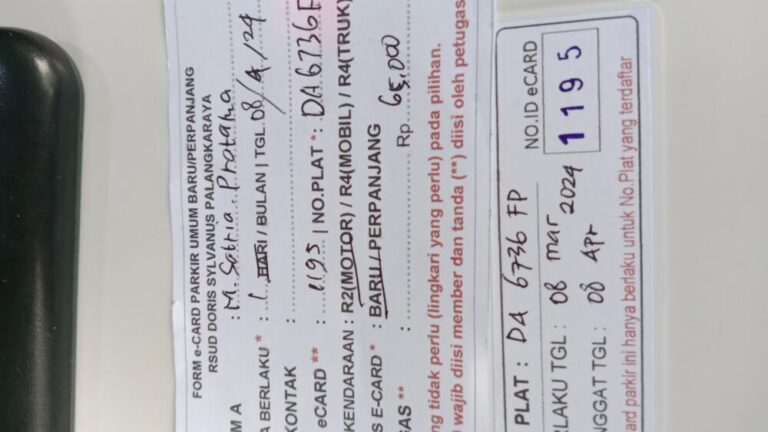 FORM e-CARD PARKIR UMUM BARU/PERPANJANG
RSUD DORIS SYLVANUS PALANGKARAYA
M A : M. Satria Pratama
A BERLAKU * : 1 HARI / BULAN | TGL. 08/4/24
KONTAK :
eCARD ** : 1195 | NO.PLAT * : DA 6736 F
KENDARAAN : R2(MOTOR) / R4(MOBIL) / R4(TRUK)
S E-CARD * : BARU / PERPANJANG
GAS ** : Rp. 65,000
ng tidak perlu (lingkari yang perlu) pada pilihan.
) wajib diisi member dan tanda (**) diisi oleh petugas
PLAT : DA 6736 FP
NO.ID eCARD
1195
RLAKU TGL : 08 mar 2024
NGGAT TGL : 08 Apr
ard parkir ini hanya berlaku untuk No.Plat yang terdaftar